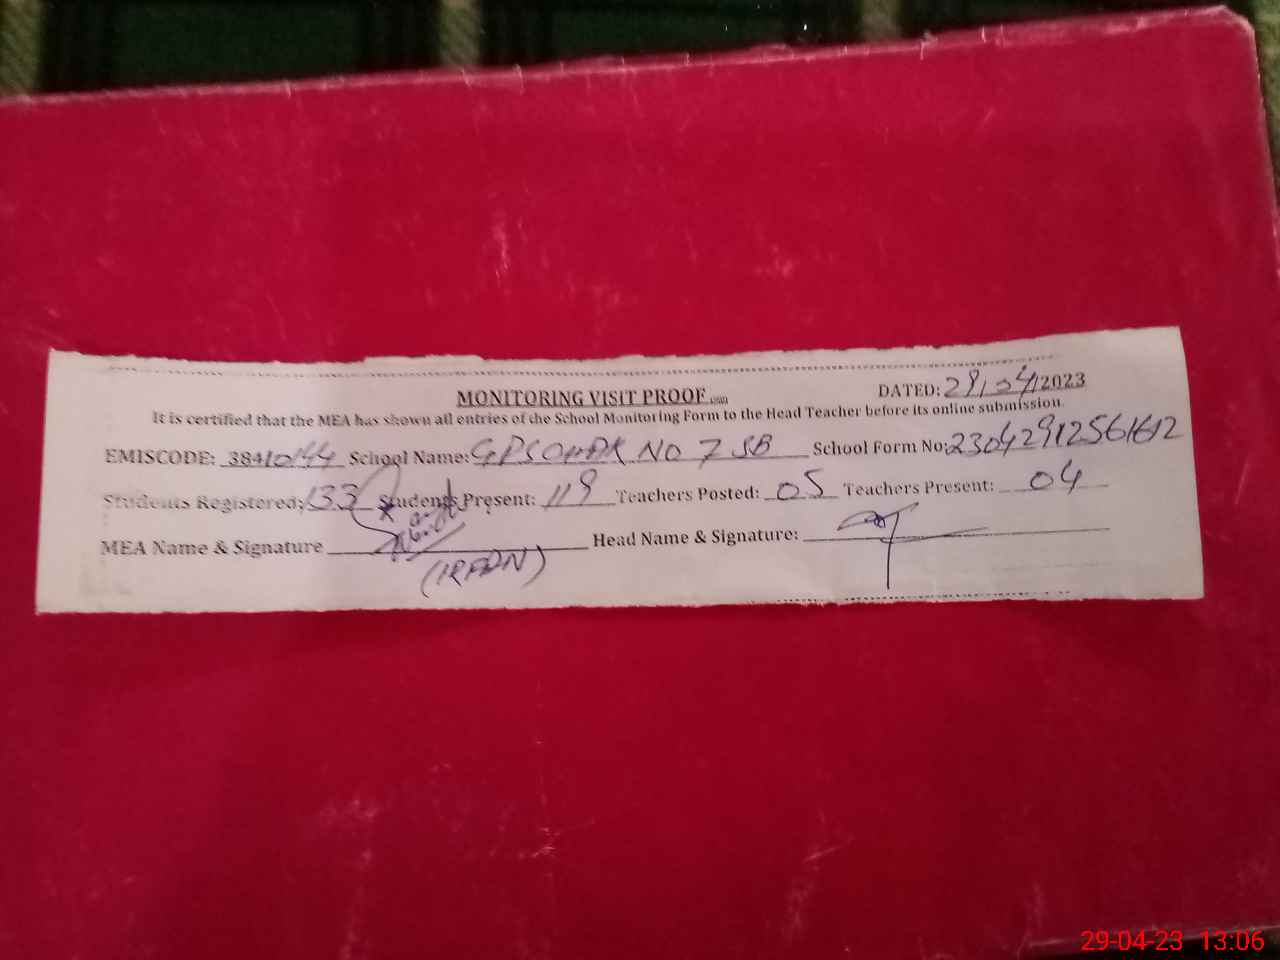 MONITORING VISIT PROOF DATED: 29/04/2023
It is certified that the MEA has shown all entries of the School Monitoring Form to the Head Teacher before its online submission.
EMISCODE: 38410144 School Name: GPS CHAK NO 7 SB School Form No: 23042912561612
Students Registered: 133 Students Present: 119 Teachers Posted: 05 Teachers Present: 04
MEA Name & Signature Head Name & Signature:
(IRFAN)
29-04-23 13:06